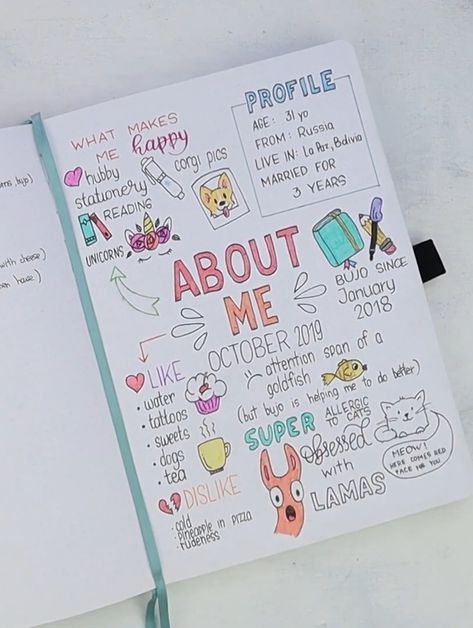 with cheese)
WHAT MAKES
ME happy
hubby
stationery
READING
UNICORNS
corgi pics
PROFILE
AGE: 31 yo
FROM: Russia
LIVE IN: La Paz, Bolivia
MARRIED FOR
3 YEARS
ABOUT
ME
OCTOBER 2019
BUJO SINCE
January
2018
LIKE
• water
• tattoos
• sweets
• dogs
• tea
attention span of a
goldfish
(but bujo is helping me to do better)
SUPER
ALLERGIC
TO CATS
MEOW!
HERE COMES RED
FACE FOR YOU
Obsessed
with
LAMAS
DISLIKE
• cold
• pineapple in pizza
• rudeness